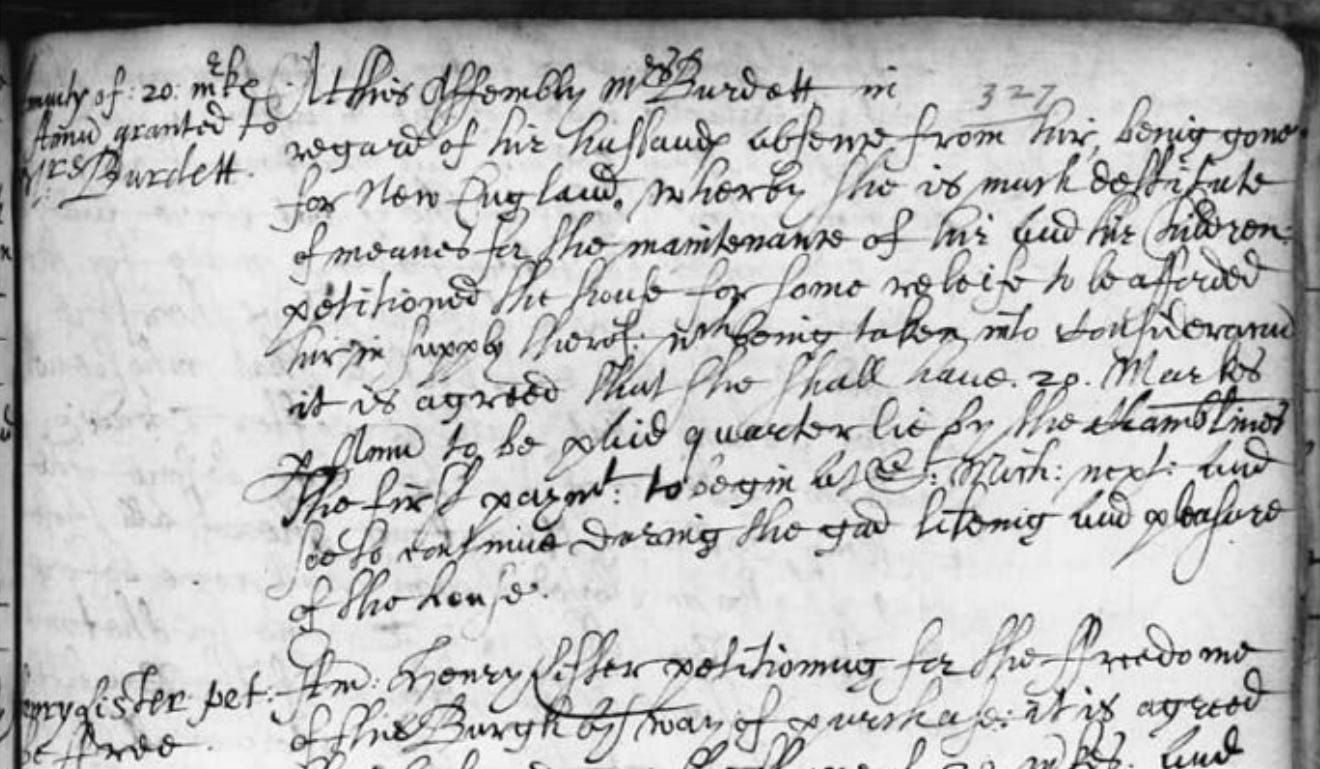 nuity of :20: mrke
Annu granted to
Mrs Burdett.
At this Assembly Mrs Burdett in
327
regard of hir husbands absence from hir, being gone
for New England, wherby she is much destitute
of meanes for the maintenance of hir and hir Children:
petitioned the house for some releife to be afforded
hir in supply therof: wch being taken into consideracion
it is agreed that she shall haue .20. Markes
p Annu to be paid quarterlie by the Chamblines
The first paymt: to begin at St: Mich: next: and
soe to continue during the gud likeing and pleasure
of the house.
enry Lister pet:
be ffree
Itm: Henry Lister petitioning for the ffreedome
of this Burgh by way of purchase: it is agreed
mkes. and